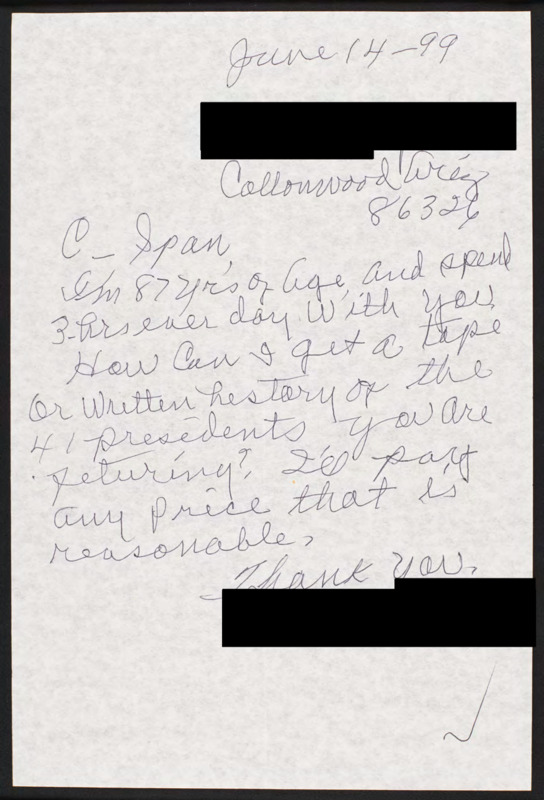 June 14-99
Cottonwood Ariz
86326
C- Span,
I'm 87 yr's of Age, and spend
3-hrs ever day with you
How Can I get a tape
Or Written hestory of the
41 presedents you are
feturing? I'd pay
any price that is
reasonable.
Thank You.